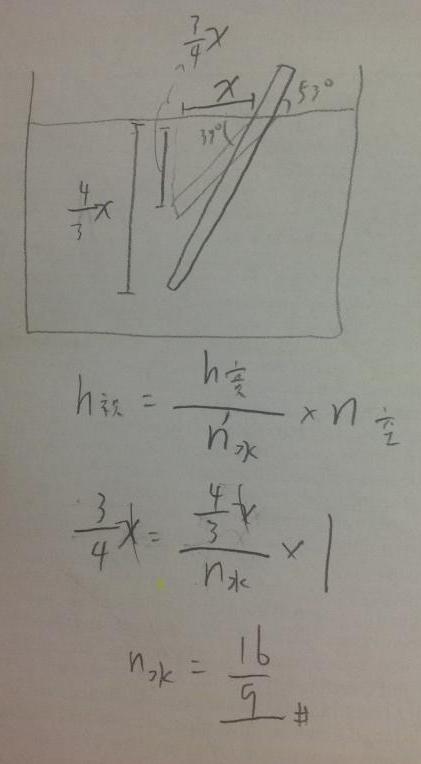 3/4 x
x
53°
37°
4/3 x
h視 = h實/n水 × n空
3/4 x = 4/3 x/n水 × 1
n水 = 16/9 #